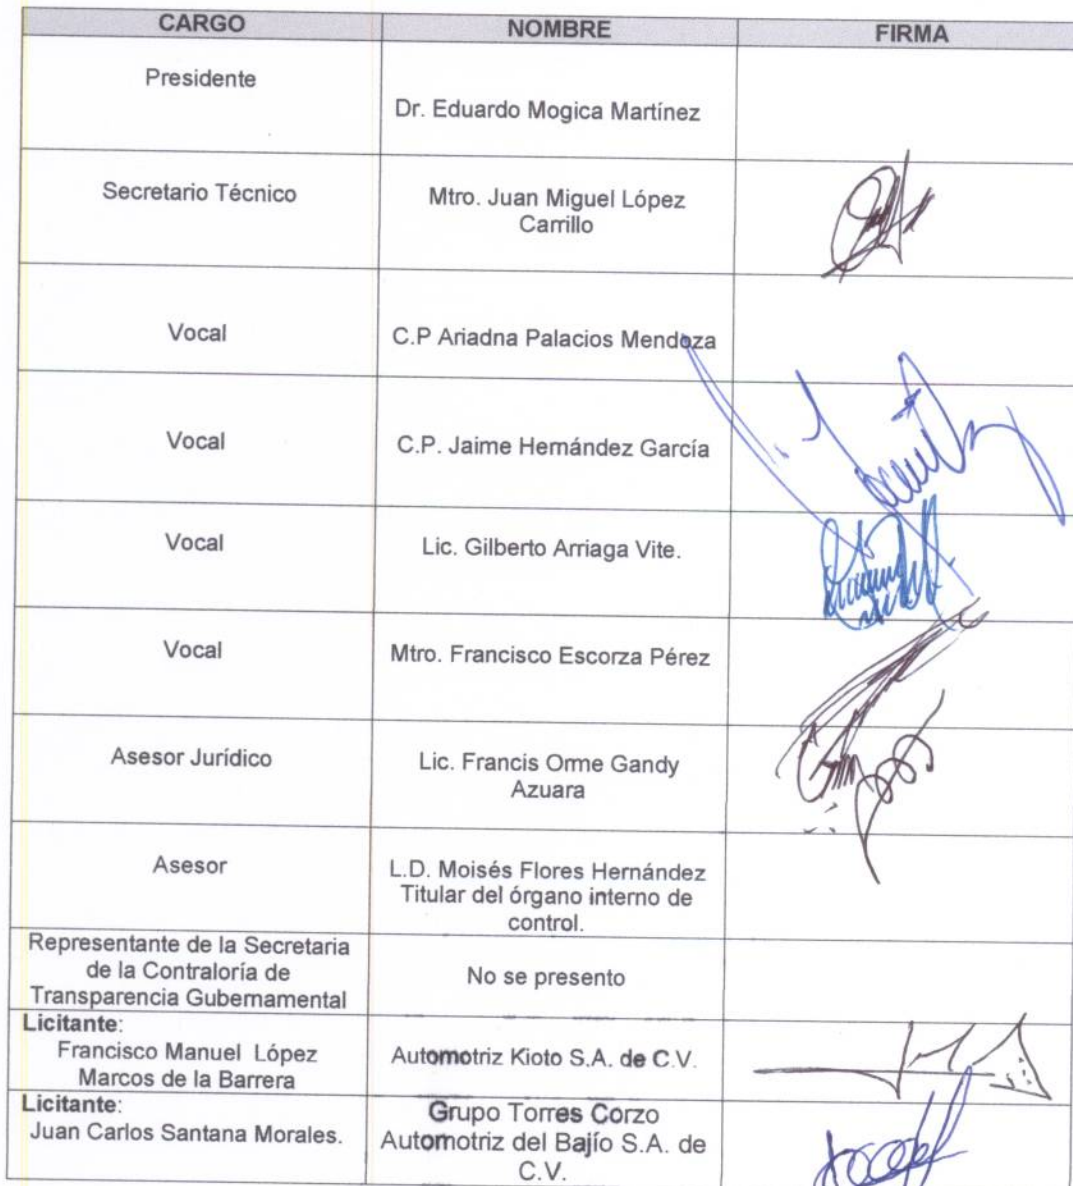 CARGO NOMBRE FIRMA
Presidente
Dr. Eduardo Mogica Martínez
Secretario Técnico
Mtro. Juan Miguel López
Carrillo
Vocal
C.P Ariadna Palacios Mendoza
Vocal
C.P. Jaime Hernández García
Vocal
Lic. Gilberto Arriaga Vite.
Vocal
Mtro. Francisco Escorza Pérez
Asesor Jurídico
Lic. Francis Orme Gandy
Azuara
Asesor
L.D. Moisés Flores Hernández
Titular del órgano interno de
control.
Representante de la Secretaria
de la Contraloría de
Transparencia Gubernamental
No se presento
Licitante:
Francisco Manuel López
Marcos de la Barrera
Automotriz Kioto S.A. de C.V.
Licitante:
Juan Carlos Santana Morales.
Grupo Torres Corzo
Automotriz del Bajío S.A. de
C.V.